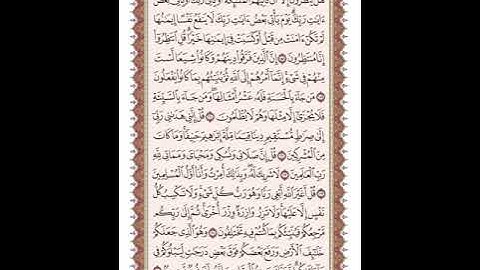 هَلْ يَنظُرُونَ إِلَّا أَن تَأْتِيَهُمُ ٱلْمَلَـٰٓئِكَةُ أَوْ يَأْتِىَ رَبُّكَ أَوْ يَأْتِىَ
بَعْضُ ءَايَـٰتِ رَبِّكَ يَوْمَ يَأْتِى بَعْضُ ءَايَـٰتِ رَبِّكَ لَا يَنفَعُ نَفْسًا إِيمَـٰنُهَا
لَمْ تَكُنْ ءَامَنَتْ مِن قَبْلُ أَوْ كَسَبَتْ فِىٓ إِيمَـٰنِهَا خَيْرًا قُلِ ٱنتَظِرُوٓا۟
إِنَّا مُنتَظِرُونَ ۝ إِنَّ ٱلَّذِينَ فَرَّقُوا۟ دِينَهُمْ وَكَانُوا۟ شِيَعًا لَّسْتَ
مِنْهُمْ فِى شَىْءٍ إِنَّمَآ أَمْرُهُمْ إِلَى ٱللَّهِ ثُمَّ يُنَبِّئُهُم بِمَا كَانُوا۟ يَفْعَلُونَ
۝ مَن جَآءَ بِٱلْحَسَنَةِ فَلَهُۥ عَشْرُ أَمْثَالِهَا وَمَن جَآءَ بِٱلسَّيِّئَةِ
فَلَا يُجْزَىٰٓ إِلَّا مِثْلَهَا وَهُمْ لَا يُظْلَمُونَ ۝ قُلْ إِنَّنِى هَدَىٰنِى رَبِّىٓ
إِلَىٰ صِرَٰطٍ مُّسْتَقِيمٍ دِينًا قِيَمًا مِّلَّةَ إِبْرَٰهِيمَ حَنِيفًا وَمَا كَانَ
مِنَ ٱلْمُشْرِكِينَ ۝ قُلْ إِنَّ صَلَاتِى وَنُسُكِى وَمَحْيَاىَ وَمَمَاتِى لِلَّهِ
رَبِّ ٱلْعَـٰلَمِينَ ۝ لَا شَرِيكَ لَهُۥ وَبِذَٰلِكَ أُمِرْتُ وَأَنَا۠ أَوَّلُ ٱلْمُسْلِمِينَ
۝ قُلْ أَغَيْرَ ٱللَّهِ أَبْغِى رَبًّا وَهُوَ رَبُّ كُلِّ شَىْءٍ وَلَا تَكْسِبُ كُلُّ
نَفْسٍ إِلَّا عَلَيْهَا وَلَا تَزِرُ وَازِرَةٌ وِزْرَ أُخْرَىٰ ثُمَّ إِلَىٰ رَبِّكُم
مَّرْجِعُكُمْ فَيُنَبِّئُكُم بِمَا كُنتُمْ فِيهِ تَخْتَلِفُونَ ۝ وَهُوَ ٱلَّذِى جَعَلَكُمْ
خَلَـٰٓئِفَ ٱلْأَرْضِ وَرَفَعَ بَعْضَكُمْ فَوْقَ بَعْضٍ دَرَجَـٰتٍ لِّيَبْلُوَكُمْ فِى